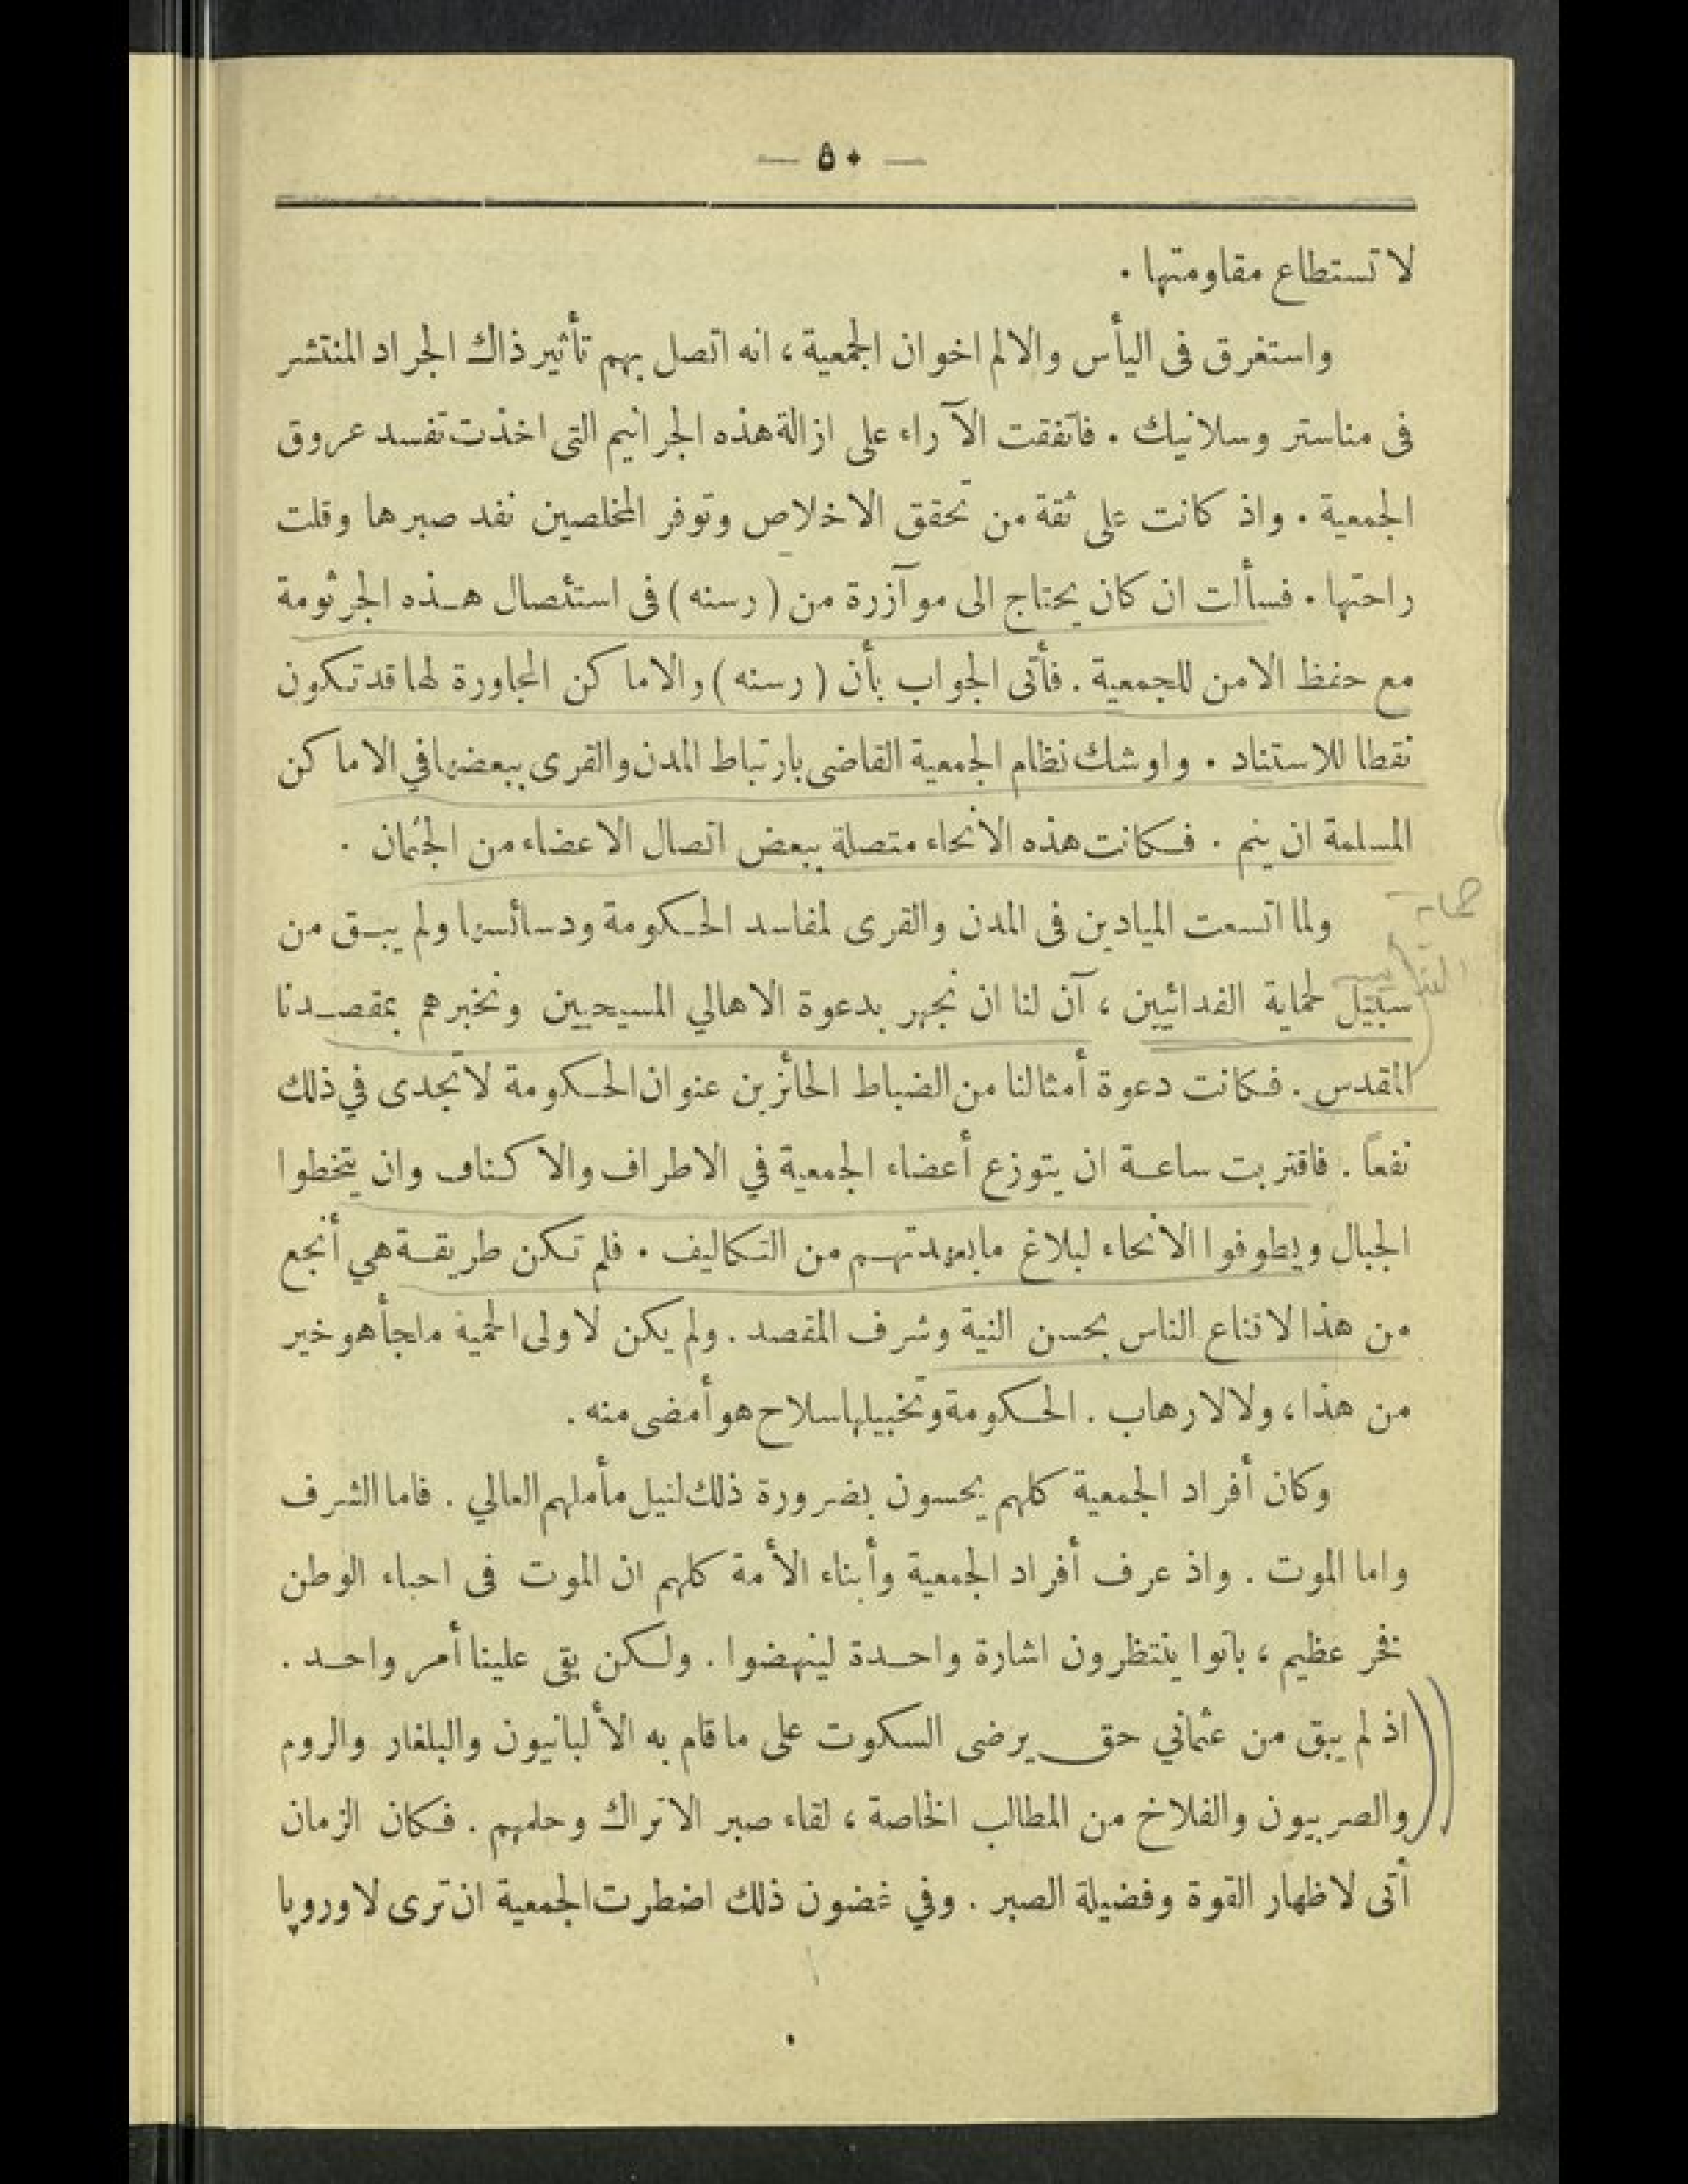 — ٥٠ —
لا تستطاع مقاومتها .
واستغرق فى اليأس والالم اخوان الجمعية ، انه اتصل بهم تأثير ذاك الجراد المنتشر
فى مناستر وسلانيك . فاتفقت الآراء على ازالة هذه الجراثيم التى اخذت تفسد عروق
الجمعية . واذ كانت على ثقة من تحقق الاخلاص وتوفر المخلصين نفد صبرها وقلت
راحتها . فسألت ان كان يحتاج الى موآزرة من ( رسنه ) فى استئصال هذه الجرثومة
مع حفظ الامن للجمعية . فأتى الجواب بأن ( رسنه ) والاماكن المجاورة لها قد تكون
نقطا للاستناد . واوشك نظام الجمعية القاضى بارتباط المدن والقرى ببعضها في الاماكن
المسلمة ان يتم . فكانت هذه الانحاء متصلة ببعض اتصال الاعضاء من الجثمان .
ولما اتسعت الميادين فى المدن والقرى لمفاسد الحكومة ودسائسها ولم يبق من
سبيل لحماية الفدائيين ، آن لنا ان نجهر بدعوة الاهالي المسيحيين ونخبرهم بمقصدنا
المقدس . فكانت دعوة أمثالنا من الضباط الحائزين عنوان الحكومة لا تجدى في ذلك
نفعاً . فاقتربت ساعة ان يتوزع أعضاء الجمعية في الاطراف والاكناف وان يتخطوا
الجبال ويطوفوا الانحاء لبلاغ ما بعهدتهم من التكاليف . فلم تكن طريقة هي أنجع
من هذا لاقناع الناس بحسن النية وشرف المقصد . ولم يكن لاولى الحمية ملجأ هو خير
من هذا ، ولا لارهاب . الحكومة وتخبيلها سلاح هو أمضى منه .
وكان أفراد الجمعية كلهم يحسون بضرورة ذلك لنيل مأملهم العالي . فاما الشرف
واما الموت . واذ عرف أفراد الجمعية وأبناء الأمة كلهم ان الموت فى احياء الوطن
فخر عظيم ، باتوا ينتظرون اشارة واحدة لينهضوا . ولكن بقى علينا أمر واحد .
اذ لم يبق من عثماني حق يرضى السكوت على ما قام به الألبانيون والبلغار والروم
والصربيون والفلاخ من المطالب الخاصة ، لقاء صبر الاتراك وحلمهم . فكان الزمان
أتى لاظهار القوة وفضيلة الصبر . وفي غضون ذلك اضطرت الجمعية ان ترى لاوروپا